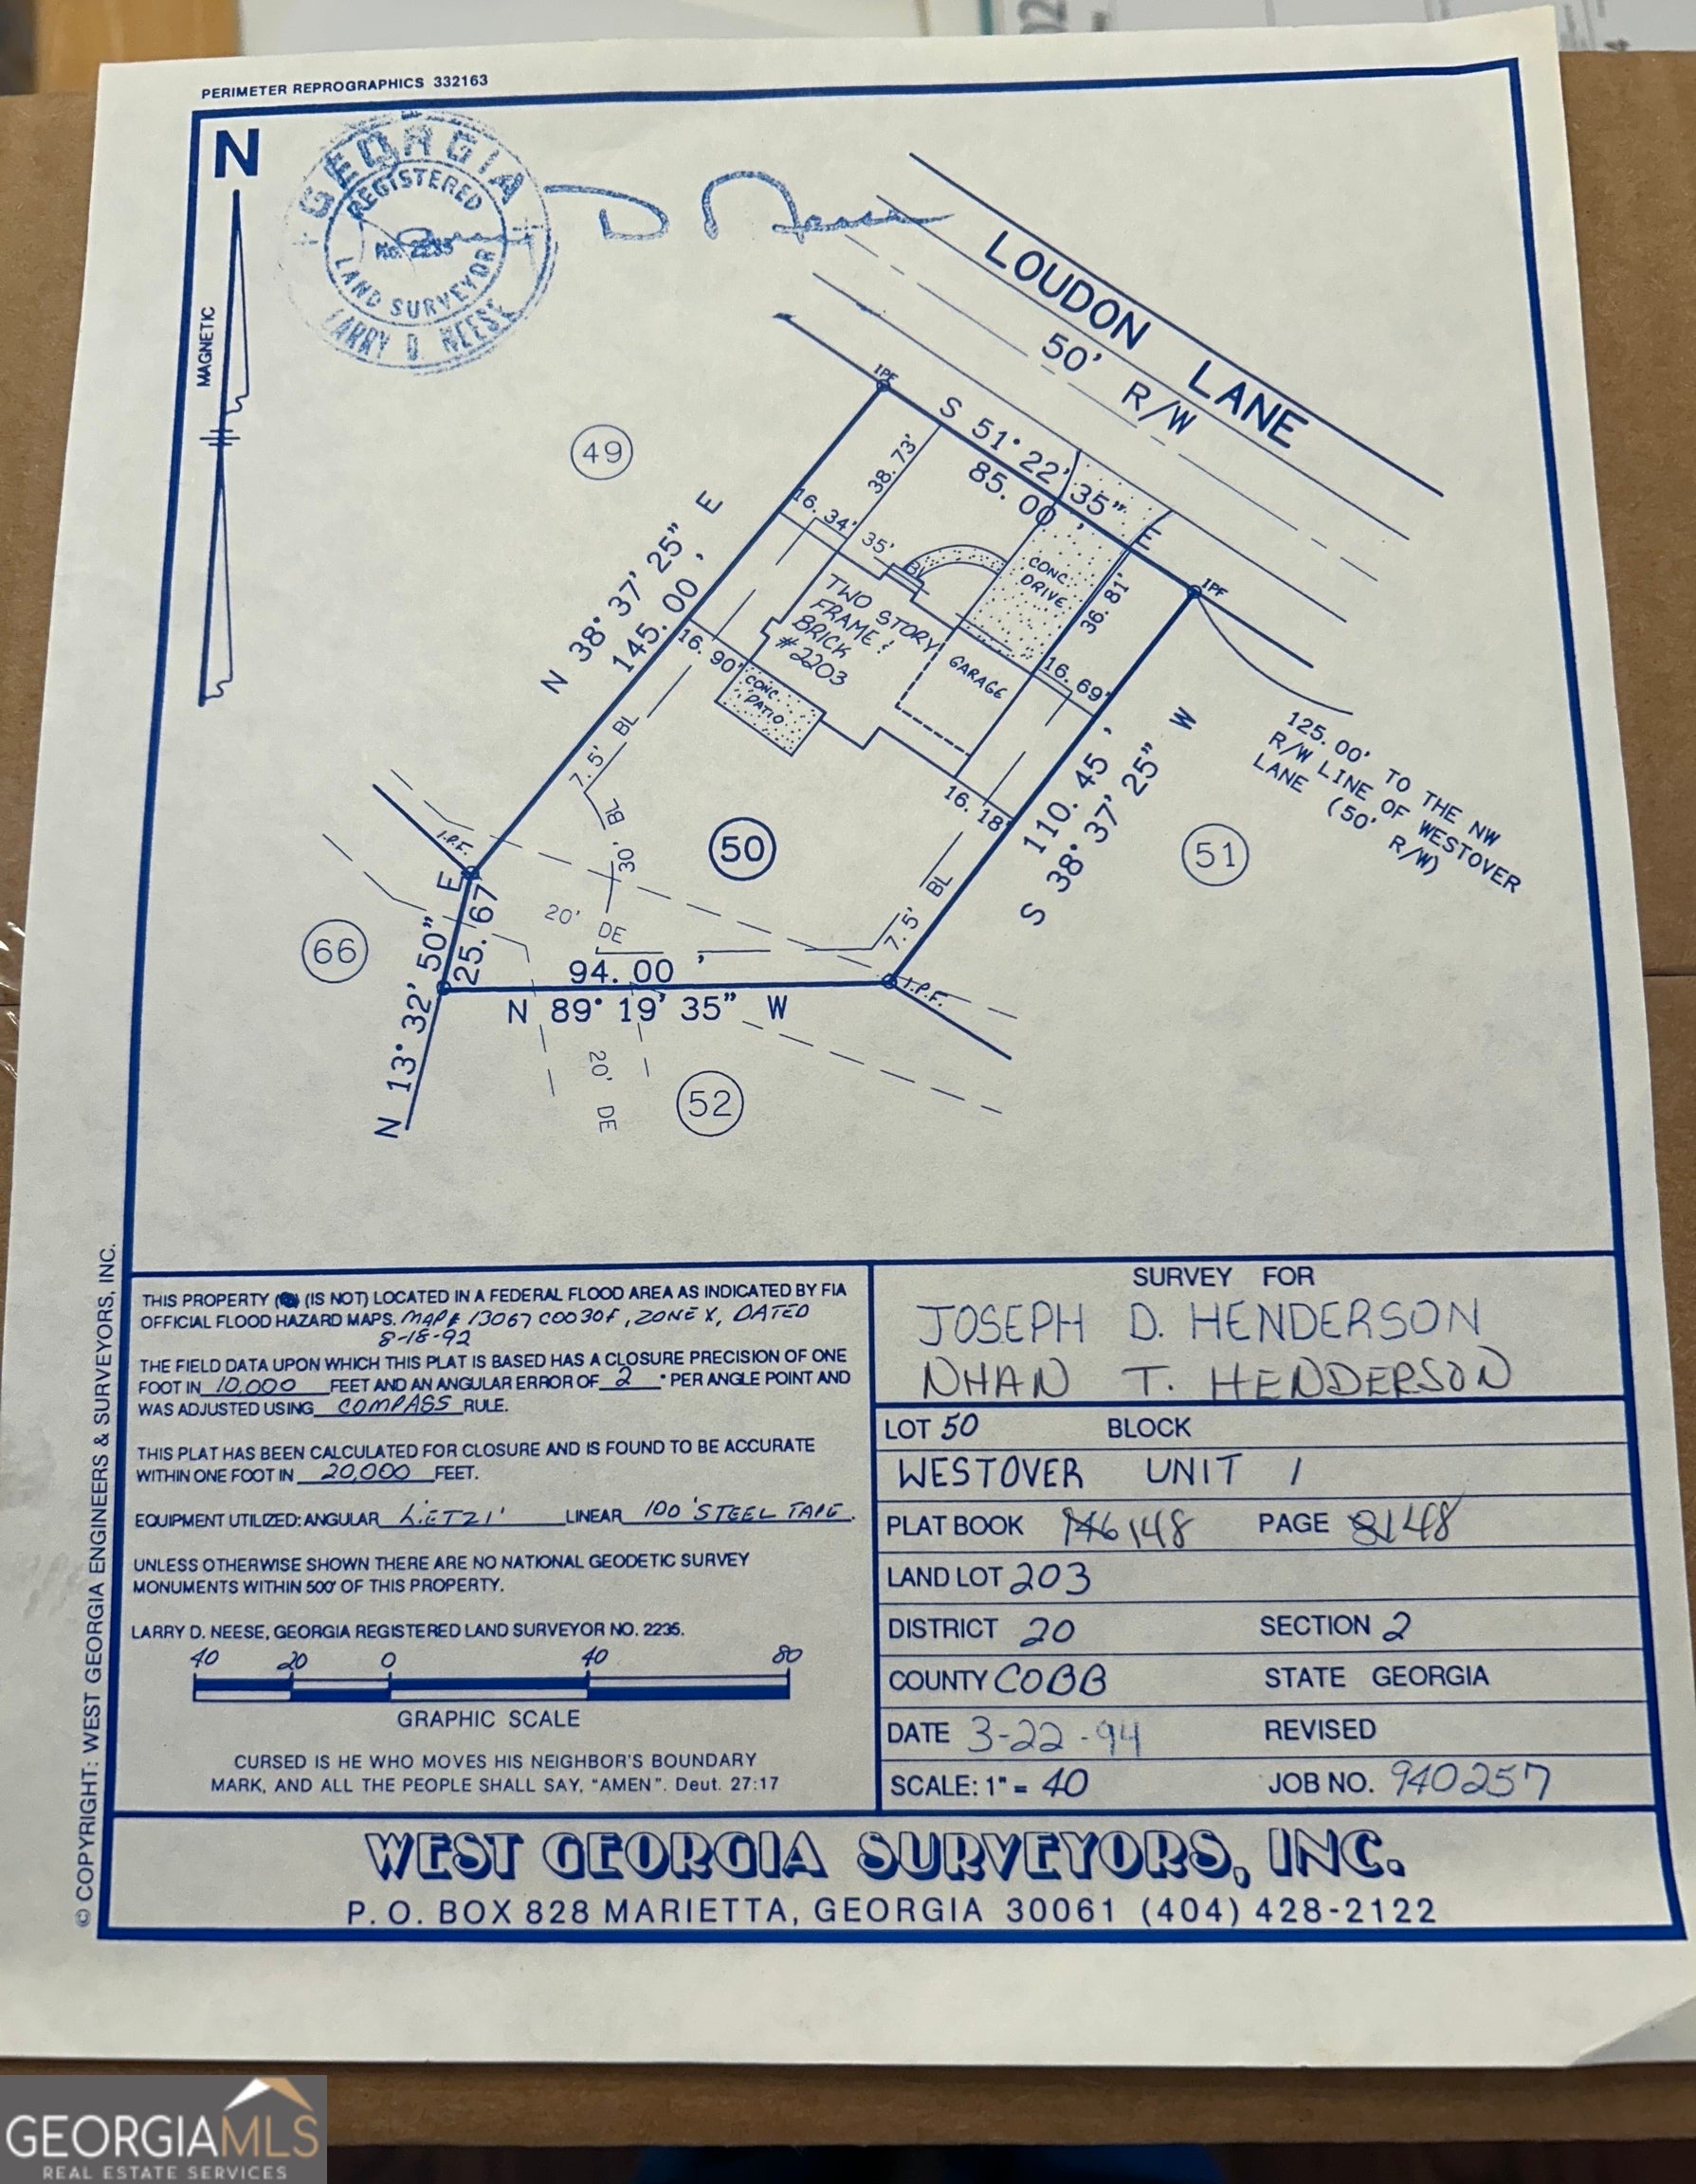 PERIMETER REPROGRAPHICS 332163
N
MAGNETIC
GEORGIA
REGISTERED
No. 2235
LAND SURVEYOR
LARRY D. NEESE
LOUDON LANE
50' R/W
IPF
S 51° 22' 35" E
85.00'
IPF
49
N 38° 37' 25" E
145.00'
38.73'
16.34'
35' BL
CONC.
DRIVE
36.81'
TWO STORY
FRAME &
BRICK
#2203
GARAGE
16.90'
CONC.
PATIO
16.69'
16.18'
110.45'
S 38° 37' 25" W
125.00' TO THE NW
R/W LINE OF WESTOVER
LANE (50' R/W)
7.5' BL
30' BL
50
51
7.5' BL
I.P.F.
20' DE
66
N 13° 32' 50" E
25.67
94.00'
N 89° 19' 35" W
I.P.F.
20' DE
52
© COPYRIGHT: WEST GEORGIA ENGINEERS & SURVEYORS, INC.
THIS PROPERTY (IS NOT) LOCATED IN A FEDERAL FLOOD AREA AS INDICATED BY FIA
OFFICIAL FLOOD HAZARD MAPS. MAP# 13067C0030F, ZONE X, DATED
8-18-92
THE FIELD DATA UPON WHICH THIS PLAT IS BASED HAS A CLOSURE PRECISION OF ONE
FOOT IN 10,000 FEET AND AN ANGULAR ERROR OF 2 " PER ANGLE POINT AND
WAS ADJUSTED USING COMPASS RULE.
THIS PLAT HAS BEEN CALCULATED FOR CLOSURE AND IS FOUND TO BE ACCURATE
WITHIN ONE FOOT IN 20,000 FEET.
EQUIPMENT UTILIZED: ANGULAR LIETZ 1" LINEAR 100' STEEL TAPE.
UNLESS OTHERWISE SHOWN THERE ARE NO NATIONAL GEODETIC SURVEY
MONUMENTS WITHIN 500' OF THIS PROPERTY.
LARRY D. NEESE, GEORGIA REGISTERED LAND SURVEYOR NO. 2235.
40 20 0 40 80
GRAPHIC SCALE
CURSED IS HE WHO MOVES HIS NEIGHBOR'S BOUNDARY
MARK, AND ALL THE PEOPLE SHALL SAY, "AMEN". Deut. 27:17
SURVEY FOR
JOSEPH D. HENDERSON
NHAN T. HENDERSON
LOT 50 BLOCK
WESTOVER UNIT 1
PLAT BOOK 148 PAGE 48
LAND LOT 203
DISTRICT 20 SECTION 2
COUNTY COBB STATE GEORGIA
DATE 3-22-94 REVISED
SCALE: 1" = 40 JOB NO. 940257
WEST GEORGIA SURVEYORS, INC.
P.O. BOX 828 MARIETTA, GEORGIA 30061 (404) 428-2122
GEORGIAMLS
REAL ESTATE SERVICES